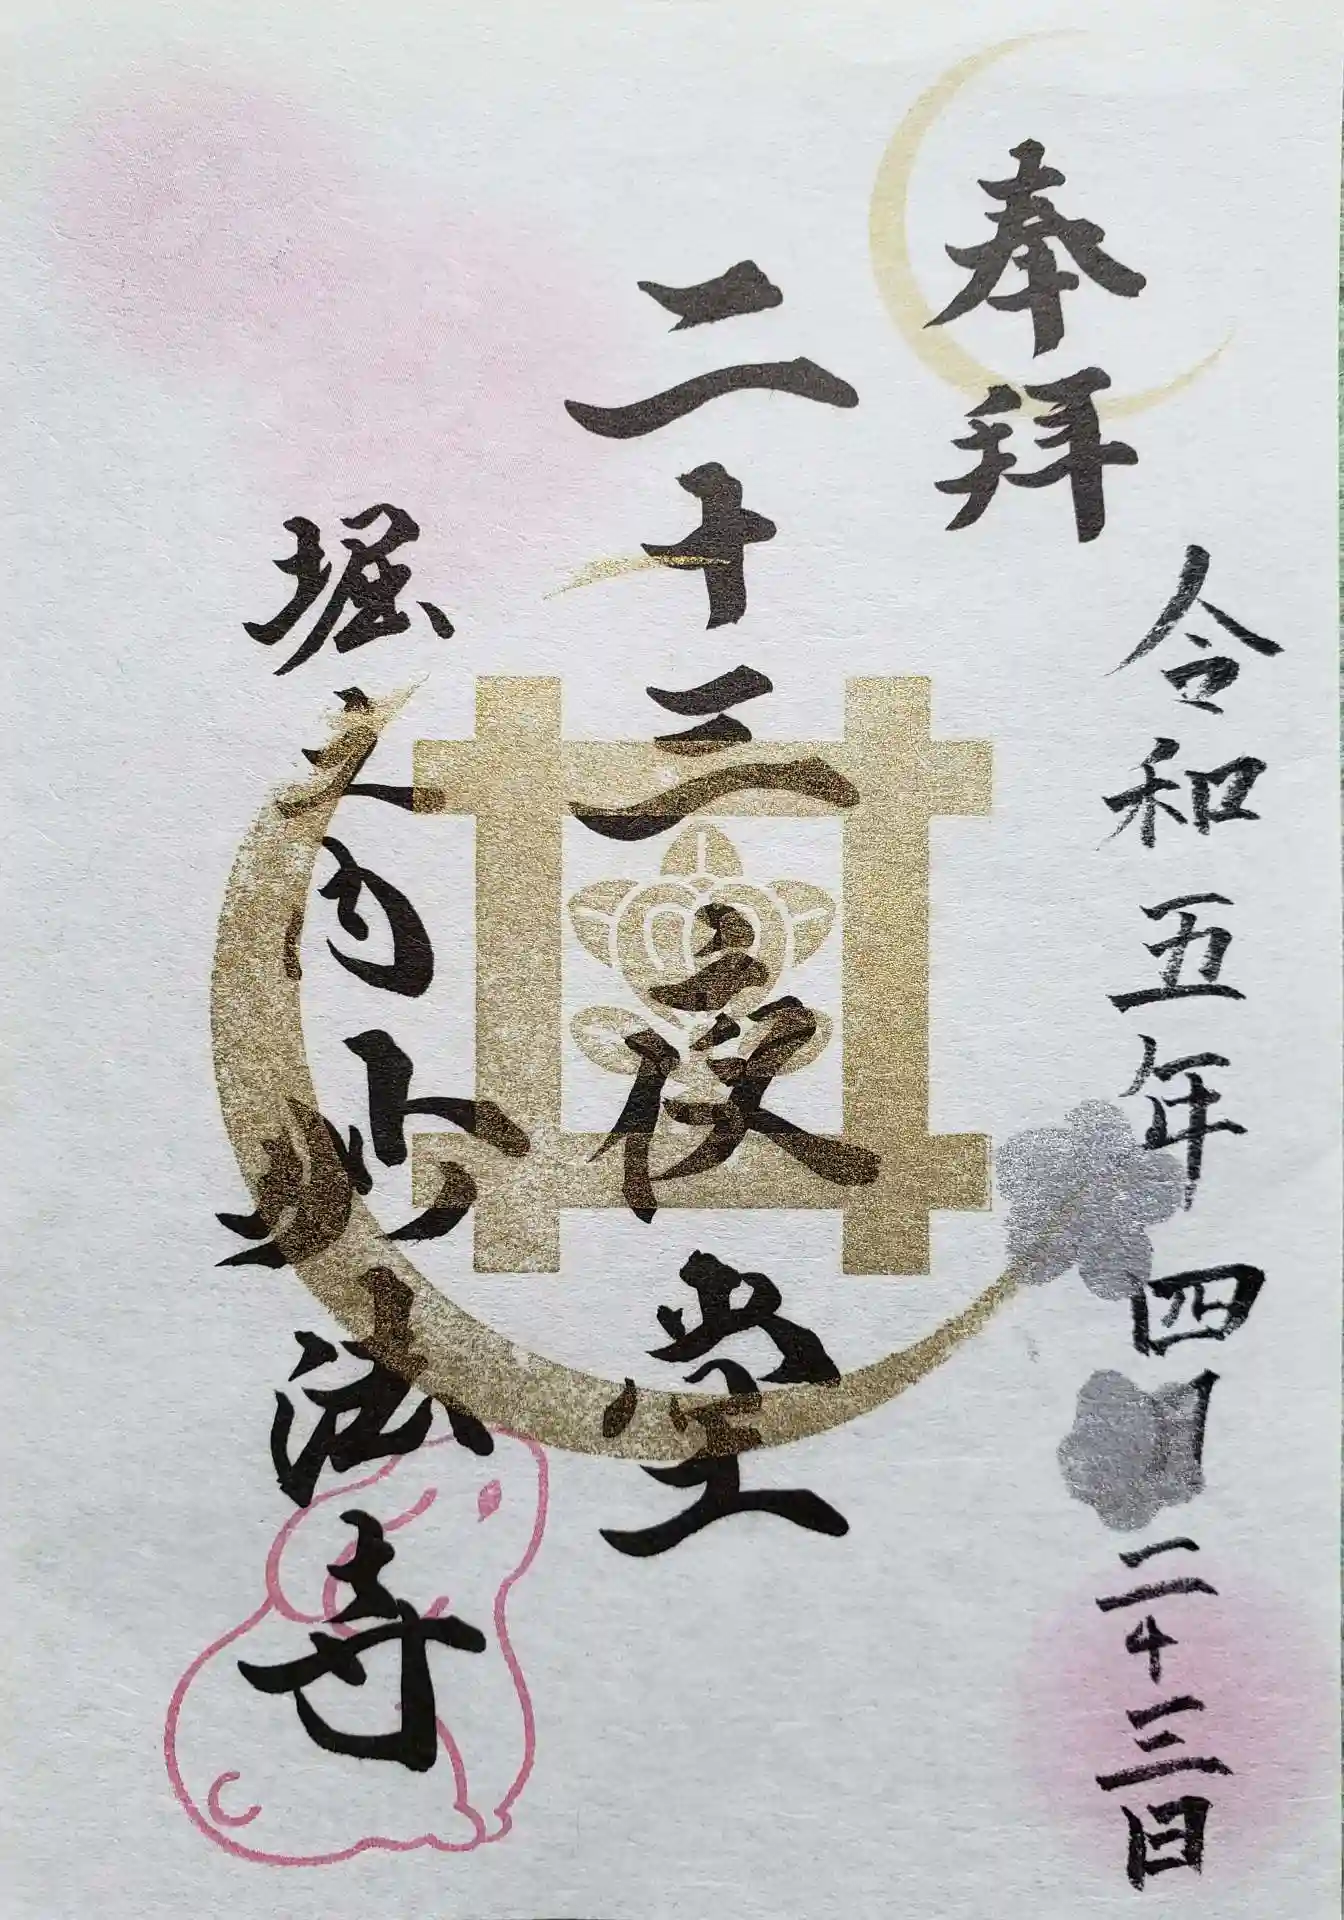 奉拝
令和五年四月二十三日
二十三夜堂
堀之内妙法寺